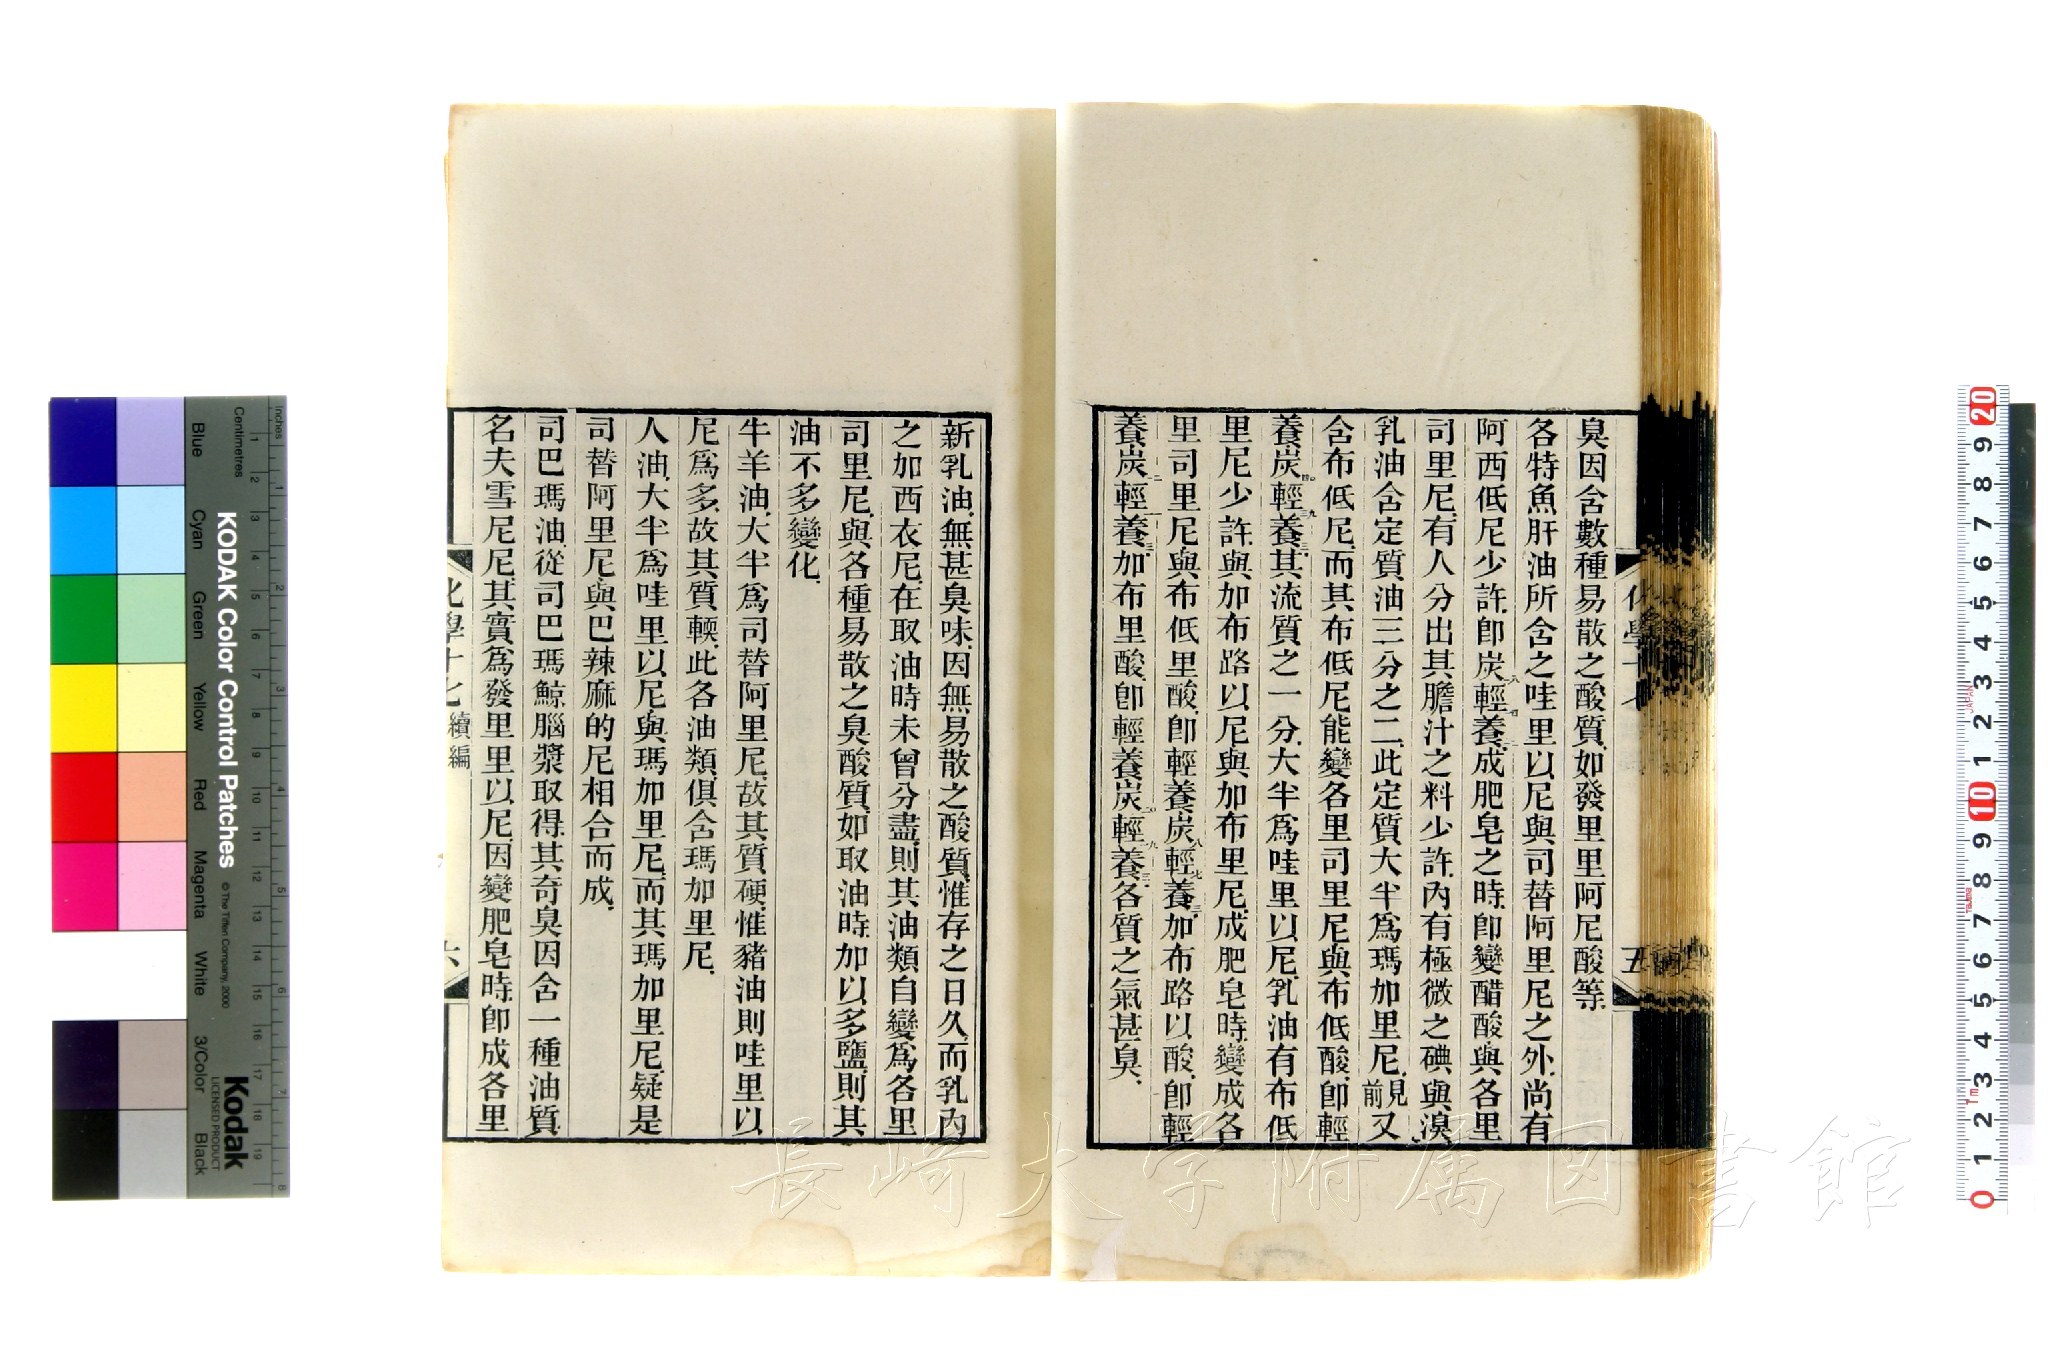 臭因含數種易散之酸質如發里里阿尼酸等
各特魚肝油所含之哇里以尼與司替阿里尼之外尚有
阿西低尼少許卽炭輕養成肥皂之時卽變醋酸與各里
司里尼有人分出其膽汁之料少許內有極微之碘與溴
乳油含定質油三分之二此定質大半爲瑪加里尼見前又
含布低尼而其布低尼能變各里司里尼與布低酸卽輕
養炭輕養其流質之一分大半爲哇里以尼乳油有布低
里尼少許與加布路以尼與加布里尼成肥皂時變成各
里司里尼與布低里酸卽輕養炭輕養加布路以酸卽輕
養炭輕養加布里酸卽輕養炭輕養各質之氣甚臭
化學十七
五
新乳油無甚臭味因無易散之酸質惟存之日久而乳內
之加西衣尼在取油時未曾分盡則其油類自變爲各里
司里尼與各種易散之臭酸質如取油時加以多鹽則其
油不多變化
牛羊油大半爲司替阿里尼故其質硬惟豬油則哇里以
尼爲多故其質輭此各油類俱含瑪加里尼
人油大半爲哇里以尼與瑪加里尼而其瑪加里尼疑是
司替阿里尼與巴辣麻的尼相合而成
司巴瑪油從司巴瑪鯨腦漿取得其奇臭因含一種油質
名夫雪尼尼其實爲發里里以尼因變肥皂時卽成各里
化學十七 續編
六
長崎大学附属図書館
KODAK Color Control Patches
©The Tiffen Company, 2000
Kodak
LICENSED PRODUCT
Inches
Centimetres
Blue
Cyan
Green
Yellow
Red
Magenta
White
3/Color
Black